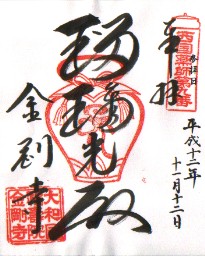 西国薬師第九番
奉拝
平成十二年
十一月十二日
瑠璃光殿
金剛寺
大和
金剛寺